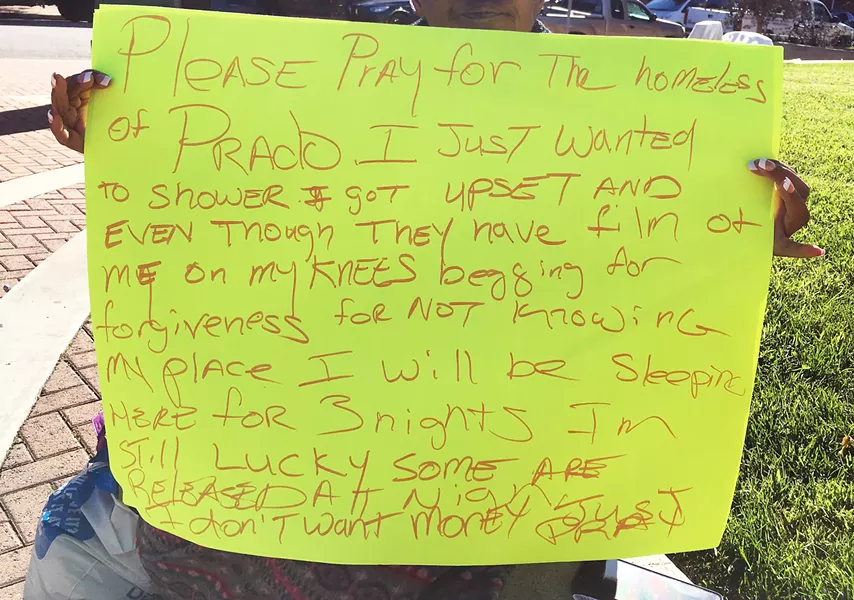 PLEASE Pray for The homeless
of PRADO. I JUST wanted
TO SHOWER I got UPSET AND
EVEN Though They have film of
ME on my KNEES begging for
forgiveness for NOT KnowiNG
My place I will be Sleeping
HERE for 3 nights Im
Still LUCKY SOME ARE
RELEASED AT Night JUST
I don't want money PRAY